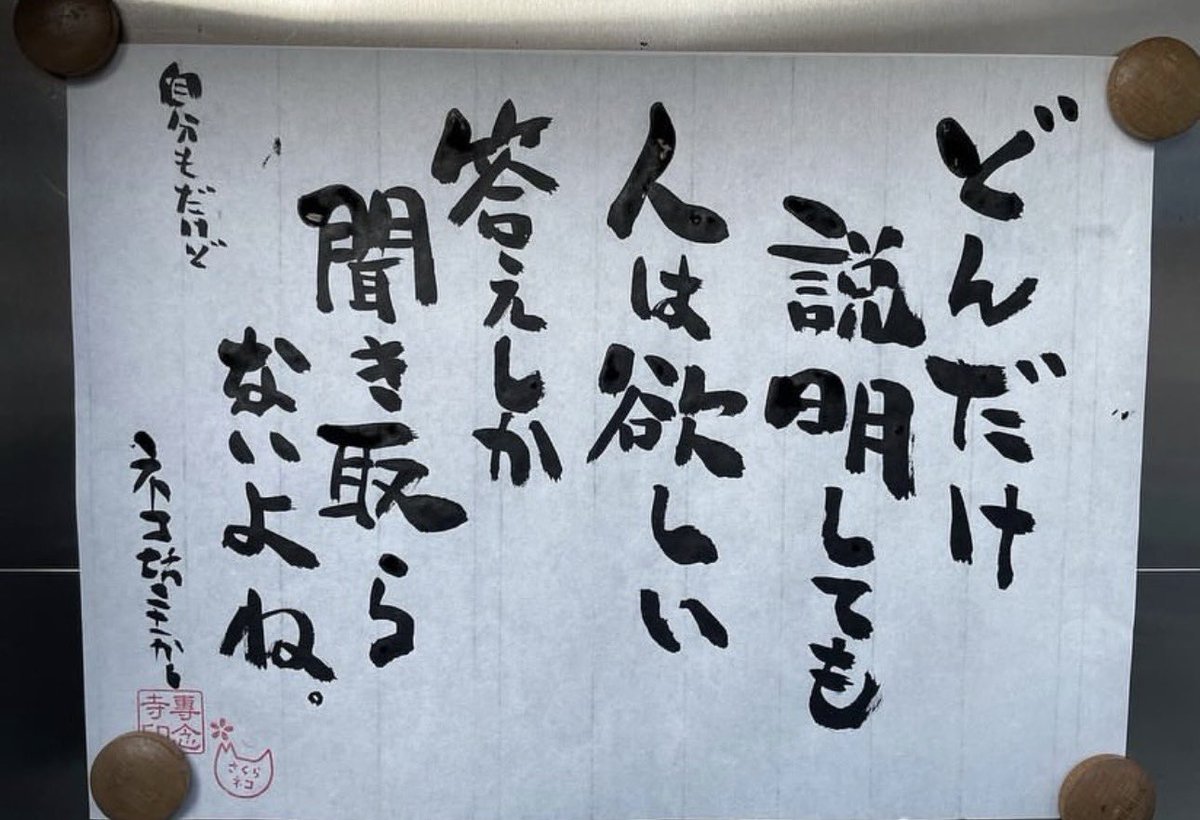 どんだけ
説明しても
人は欲しい
答えしか
聞き取ら
ないよね。
自分もだけど
ネコ坊主から
專念
寺印
さくら
ネコ